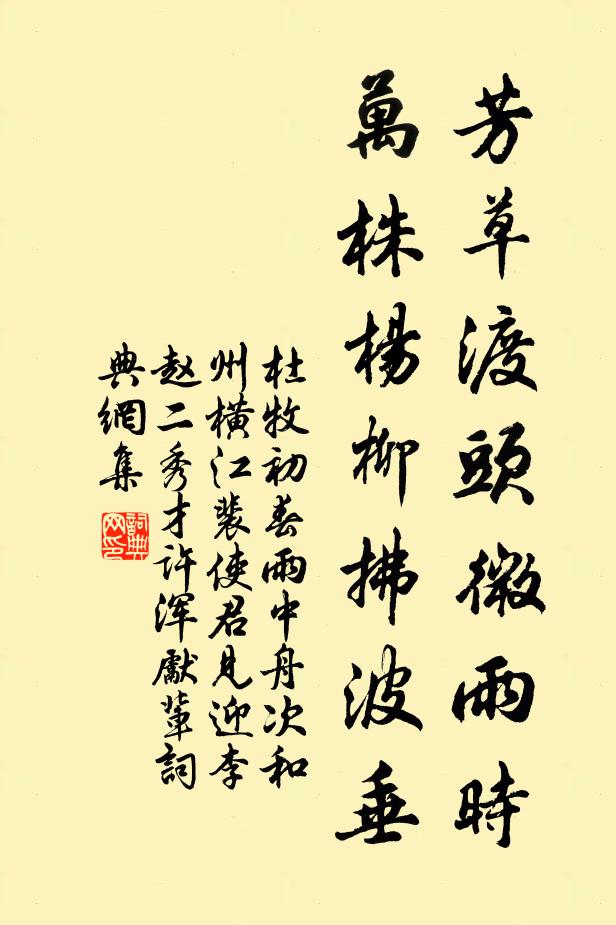 芳草渡頭微雨時
萬株楊柳拂波垂
杜牧初春雨中舟次和
州橫江裴使君見迎李
赵二秀才許渾獻輩詞
典網集
詞典
网印